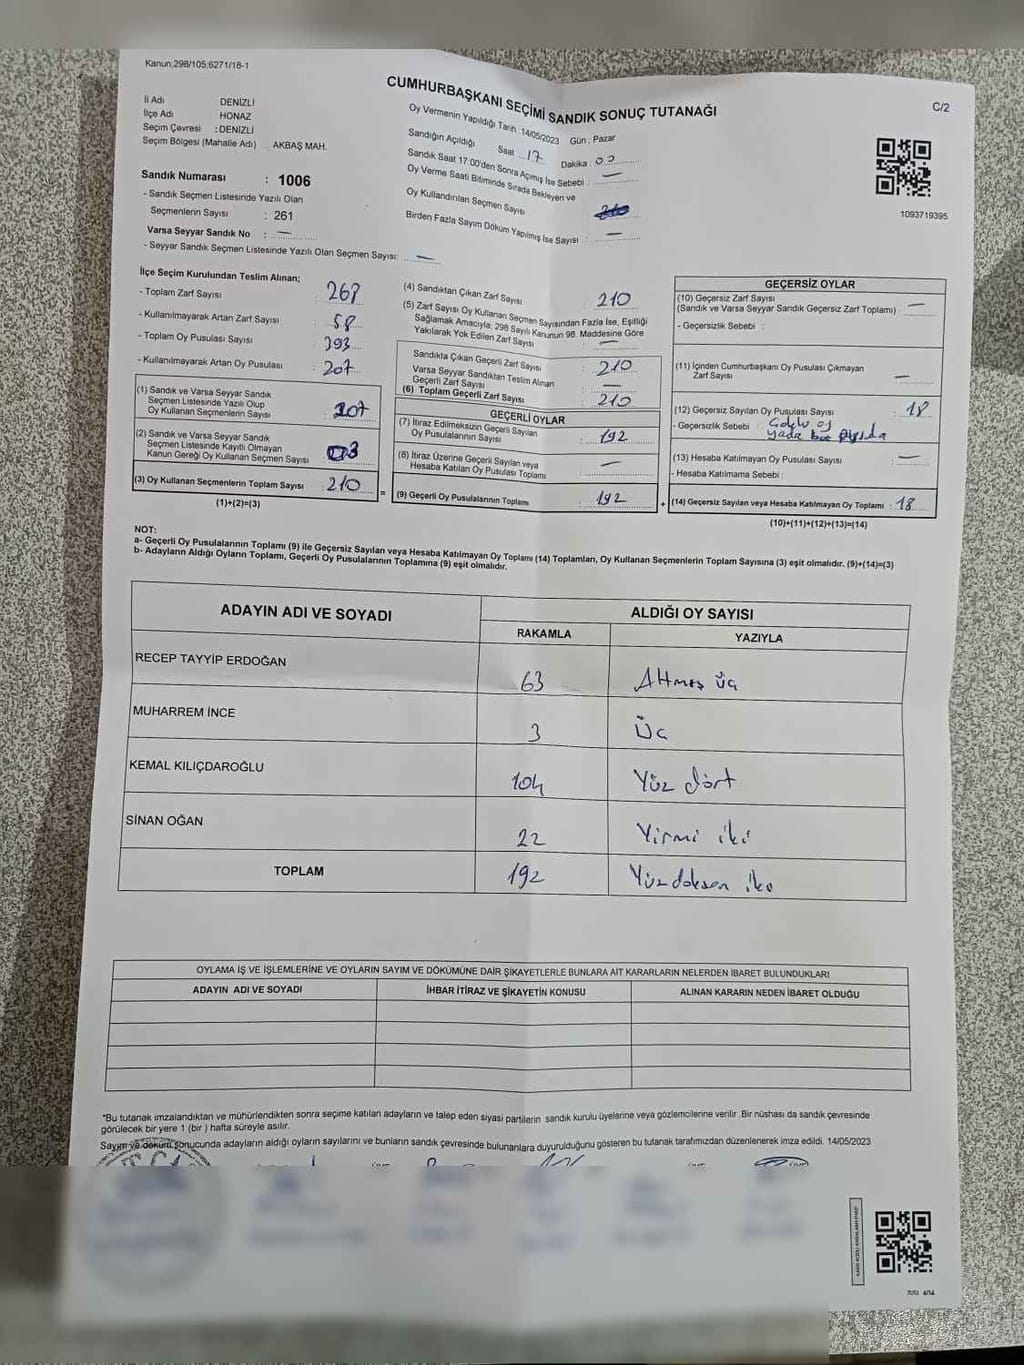 Kanun:298/105;6271/18-1
CUMHURBAŞKANI SEÇİMİ SANDIK SONUÇ TUTANAĞI
C/2
İl Adı DENİZLİ
İlçe Adı HONAZ
Seçim Çevresi :DENİZLİ
Seçim Bölgesi (Mahalle Adı) AKBAŞ MAH.
Sandık Numarası : 1006
- Sandık Seçmen Listesinde Yazılı Olan
Seçmenlerin Sayısı : 261
Varsa Seyyar Sandık No : —
- Seyyar Sandık Seçmen Listesinde Yazılı Olan Seçmen Sayısı: —
Oy Vermenin Yapıldığı Tarih :14/05/2023 Gün : Pazar
Sandığın Açıldığı Saat 17 Dakika : 00
Sandık Saat 17:00'den Sonra Açımış İse Sebebi : —
Oy Verme Saati Bitiminde Sırada Bekleyen ve
Oy Kullandırılan Seçmen Sayısı
Birden Fazla Sayım Döküm Yapılmış İse Sayısı : —
1093719395
İlçe Seçim Kurulundan Teslim Alınan;
- Toplam Zarf Sayısı : 268
- Kullanılmayarak Artan Zarf Sayısı : 58
- Toplam Oy Pusulası Sayısı : 393
- Kullanılmayarak Artan Oy Pusulası : 207
(1) Sandık ve Varsa Seyyar Sandık
Seçmen Listesinde Yazılı Olup
Oy Kullanan Seçmenlerin Sayısı : 207
(2) Sandık ve Varsa Seyyar Sandık
Seçmen Listesinde Kayıtlı Olmayan
Kanun Gereği Oy Kullanan Seçmen Sayısı 3
(3) Oy Kullanan Seçmenlerin Toplam Sayısı : 210
(1)+(2)=(3)
(4) Sandıktan Çıkan Zarf Sayısı : 210
(5) Zarf Sayısı Oy Kullanan Seçmen Sayısından Fazla İse, Eşitliği
Sağlamak Amacıyla; 298 Sayılı Kanunun 98. Maddesine Göre
Yakılarak Yok Edilen Zarf Sayısı : —
Sandıkta Çıkan Geçerli Zarf Sayısı : 210
Varsa Seyyar Sandıktan Teslim Alınan
Geçerli Zarf Sayısı : —
(6) Toplam Geçerli Zarf Sayısı : 210
GEÇERLİ OYLAR
(7) İtiraz Edilmeksizin Geçerli Sayılan
Oy Pusulalarının Sayısı : 192
(8) İtiraz Üzerine Geçerli Sayılan veya
Hesaba Katılan Oy Pusulası Toplamı : —
= (9) Geçerli Oy Pusulalarının Toplamı : 192
GEÇERSİZ OYLAR
(10) Geçersiz Zarf Sayısı
(Sandık ve Varsa Seyyar Sandık Geçersiz Zarf Toplamı) : —
- Geçersizlik Sebebi :
(11) İçinden Cumhurbaşkanı Oy Pusulası Çıkmayan
Zarf Sayısı : —
(12) Geçersiz Sayılan Oy Pusulası Sayısı : 18
- Geçersizlik Sebebi : oy
yada
(13) Hesaba Katılmayan Oy Pusulası Sayısı : —
- Hesaba Katılmama Sebebi :
+ (14) Geçersiz Sayılan veya Hesaba Katılmayan Oy Toplamı : 18
(10)+(11)+(12)+(13)=(14)
NOT:
a- Geçerli Oy Pusulalarının Toplamı (9) ile Geçersiz Sayılan veya Hesaba Katılmayan Oy Toplamı (14) Toplamları, Oy Kullanan Seçmenlerin Toplam Sayısına (3) eşit olmalıdır. (9)+(14)=(3)
b- Adayların Aldığı Oyların Toplamı, Geçerli Oy Pusulalarının Toplamına (9) eşit olmalıdır.
ADAYIN ADI VE SOYADI ALDIĞI OY SAYISI
RAKAMLA YAZIYLA
RECEP TAYYİP ERDOĞAN 63 Altmış üç
MUHARREM İNCE 3 Üç
KEMAL KILIÇDAROĞLU 104 Yüz dört
SİNAN OĞAN 22 Yirmi iki
TOPLAM 192 Yüzdoksan iki
OYLAMA İŞ VE İŞLEMLERİNE VE OYLARIN SAYIM VE DÖKÜMÜNE DAİR ŞİKAYETLERLE BUNLARA AİT KARARLARIN NELERDEN İBARET BULUNDUKLARI
ADAYIN ADI VE SOYADI İHBAR İTİRAZ VE ŞİKAYETİN KONUSU ALINAN KARARIN NEDEN İBARET OLDUĞU
*Bu tutanak imzalandıktan ve mühürlendikten sonra seçime katılan adayların ve talep eden siyasi partilerin sandık kurulu üyelerine veya gözlemcilerine verilir .Bir nüshası da sandık çevresinde
görülecek bir yere 1 (bir ) hafta süreyle asılır.
Sayım ve döküm sonucunda adayların aldığı oyların sayılarını ve bunların sandık çevresinde bulunanlara duyurulduğunu gösteren bu tutanak tarafımızdan düzenlenerek imza edildi. 14/05/2023